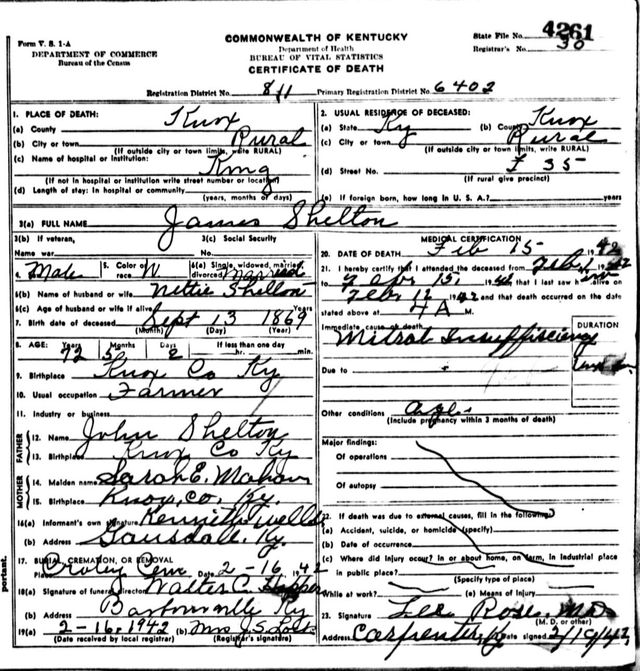 Form V. S. 1-A
DEPARTMENT OF COMMERCE
Bureau of the Census
COMMONWEALTH OF KENTUCKY
Department of Health
BUREAU OF VITAL STATISTICS
CERTIFICATE OF DEATH
State File No. 4261
Registrar's No. 30
Registration District No. 811 Primary Registration District No. 6402
1. PLACE OF DEATH:
(a) County Knox
(b) City or town Rural
(If outside city or town limits, write RURAL)
(c) Name of hospital or institution: King
(If not in hospital or institution write street number or location)
(d) Length of stay: In hospital or community
(years, months or days)
2. USUAL RESIDENCE OF DECEASED:
(a) State Ky (b) County Knox
(c) City or town Rural
(If outside city or town limits, write RURAL)
(d) Street No. F 35
(If rural give precinct)
(e) If foreign born, how long in U. S. A.? years
3(a) FULL NAME James Shelton
3(b) If veteran, Name war
3(c) Social Security No.
4. Male 5. Color or race W 6(a) Single, widowed, married, divorced Married
6(b) Name of husband or wife Nettie Shelton
6(c) Age of husband or wife if alive Years
7. Birth date of deceased Sept 13 1869
(Month) (Day) (Year)
8. AGE: Years 72 Months 5 Days 2 If less than one day hr. min.
9. Birthplace Knox Co Ky
10. Usual occupation Farmer
11. Industry or business
FATHER
12. Name John Shelton
13. Birthplace Knox Co Ky
MOTHER
14. Maiden name Sarah E.
15. Birthplace Knox, Co, Ky.
16(a) Informant's own signature Kenneth
(b) Address Ky.
17. BURIAL, CREMATION, OR REMOVAL
Place Croley Cem Date 2-16, 1942
18(a) Signature of funeral director Walter C. Hopper
(b) Address Barbourville Ky
19(a) 2-16-1942 (b) Mrs J. S. Lock
(Date received by local registrar) (Registrar's signature)
MEDICAL CERTIFICATION
20. DATE OF DEATH Feb 15 1942
21. I hereby certify that I attended the deceased from Feb 1 1942
to 15, 1942 that I last saw h alive on
Feb 12 1942 and that death occurred on the date
stated above at 4 A M.
Immediate cause of death
Mitral Insufficiency
DURATION
Due to
Other conditions age
(Include pregnancy within 3 months of death)
Major findings:
Of operations
Of autopsy
22. If death was due to external causes, fill in the following:
(a) Accident, suicide, or homicide (specify)
(b) Date of occurrence
(c) Where did injury occur? In or about home, on farm, in industrial place
in public place?
(Specify type of place)
While at work? (e) Means of Injury
23. Signature Lee Rose MD
(M. D. or other)
Address Carpenter, Ky Date signed 2/19/42
portant.